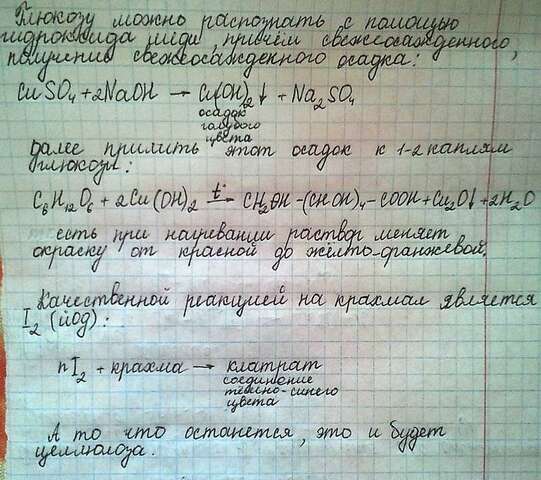 Глюкозу можно распознать с помощью
гидроксида меди, причём свежеосажденного,
получение свежеосажденного осадка:
CuSO₄ + 2NaOH → Cu(OH)₂↓ + Na₂SO₄
осадок
голубого
цвета
далее прилить этот осадок к 1-2 каплям
глюкозы:
C₆H₁₂O₆ + 2Cu(OH)₂ t°→ CH₂OH-(CHOH)₄-COOH+Cu₂O↓+2H₂O
есть при нагревании раствор меняет
окраску от красной до жёлто-оранжевой.
Качественной реакцией на крахмал является
I₂ (йод):
nI₂ + крахма → клатрат
соединение
тёмно-синего
цвета
А то что останется, это и будет
целлюлоза.